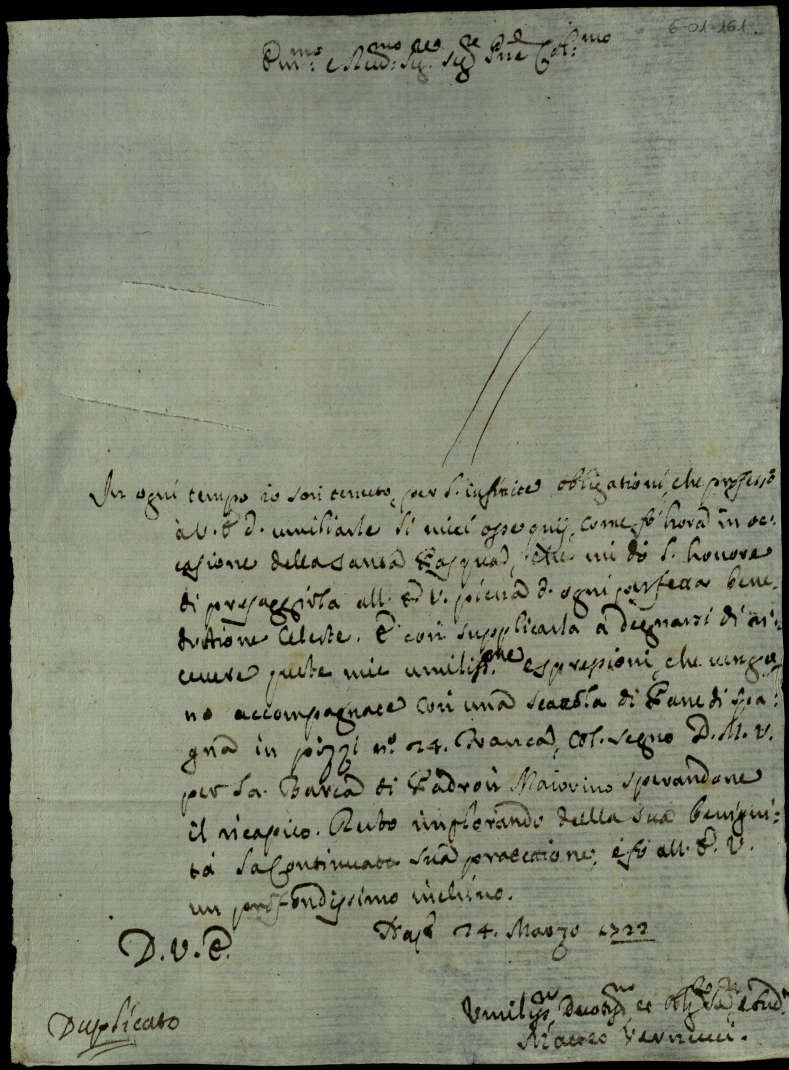 6-01-161.
Em.mo e Reud.mo Sig.r Sig.r Pne Col.mo
In ogni tempo io son tenuto, per l'infinite obligationi, che professo
à V. E. d. umiliarle li miei ossequij, come fo hora in oc:
casione della Santa Pasqua, che mi dò l'honore
di presaggirla all' E. V. piena d. ogni perfetta bene:
ditione Celeste. E con supplicarla a degnarsi di ri:
ceuere queste mie umiliss.me espressioni, che uengo:
no accompagnate con una scatola di Pane di spa:
gna in pizzi n.o 24. Franca, col. segno D. M. V.
per la Barca di Padron Maiorino sperandone
il ricapito. Resto implorando della sua benigni:
tà la Continuata sua protettione, e fo all' E. V.
un profondissimo inchino.
D. V. E. Nap. 24. Marzo 1722
Umiliss. Deuotiss. et Obl. Ser.
Duplicato Matteo Vernucci.